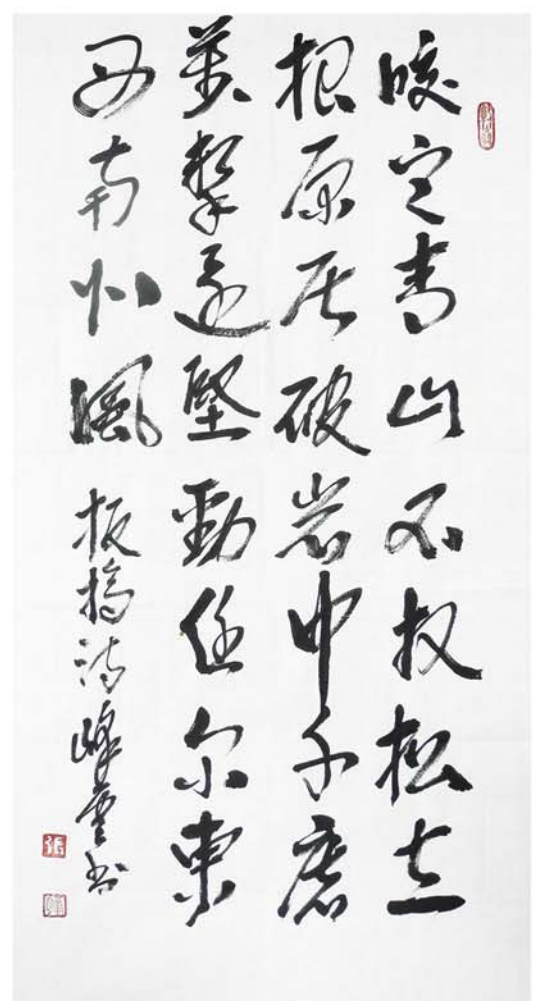 咬定青山不放松立
根原在破岩中千磨
萬擊還堅勁任尔東
西南北風 板橋詩峰雲书
張